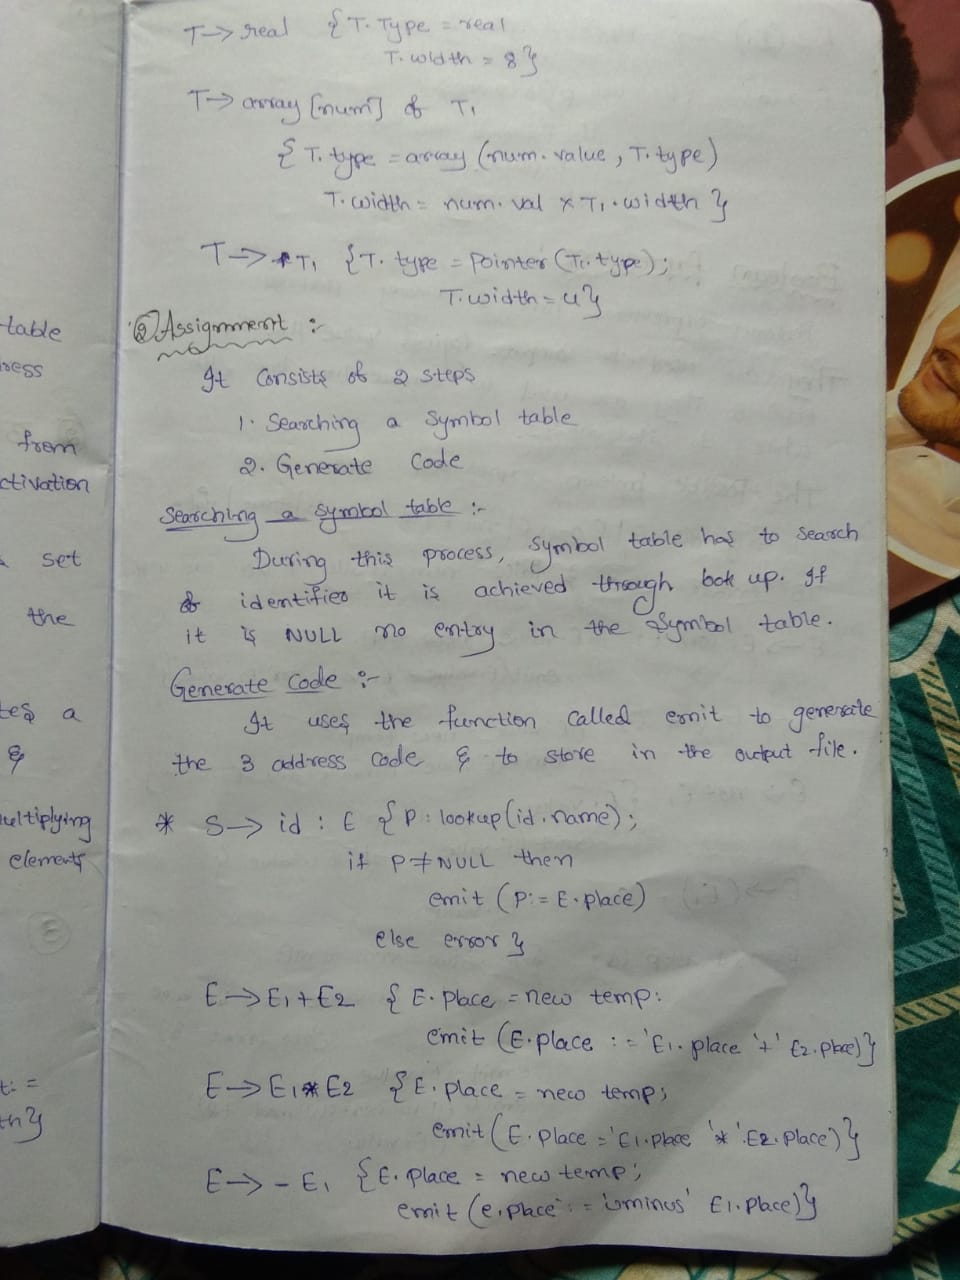 T → real {T.Type = real
T.width = 8}
T → array [num] of T1
{T.type = array (num.value, T.type)
T.width = num.val × T1.width}
T → *T1 {T.type = Pointer (T1.type);
T.width = 4}
② Assignment :-
It Consists of 2 steps
1. Searching a symbol table
2. Generate Code
Searching a symbol table :-
During this process, symbol table has to search
& identifies it is achieved through look up. If
it is NULL no entry in the symbol table.
Generate code :-
It uses the function called emit to generate
the 3 address code & to store in the output file.
* S → id : E {P : lookup(id.name);
if P ≠ NULL then
emit (P := E.place)
else error}
E → E1 + E2 {E.place = new temp:
emit (E.place := 'E1.place '+' E2.place)}
E → E1 * E2 {E.place = new temp;
emit (E.place = 'E1.place '*' .E2.place)}
E → - E1 {E.place = new temp;
emit (e.place := 'uminus' E1.place)}
table
ress
from
ctivation
set
the
tes a
&
multiplying
elements
t: =
th}